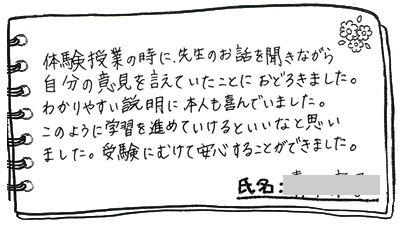 体験授業の時に、先生のお話を聞きながら
自分の意見を言えていたことにおどろきました。
わかりやすい説明に本人も喜んでいました。
このように学習を進めていけるといいなと思い
ました。受験にむけて安心することができました。
氏名: